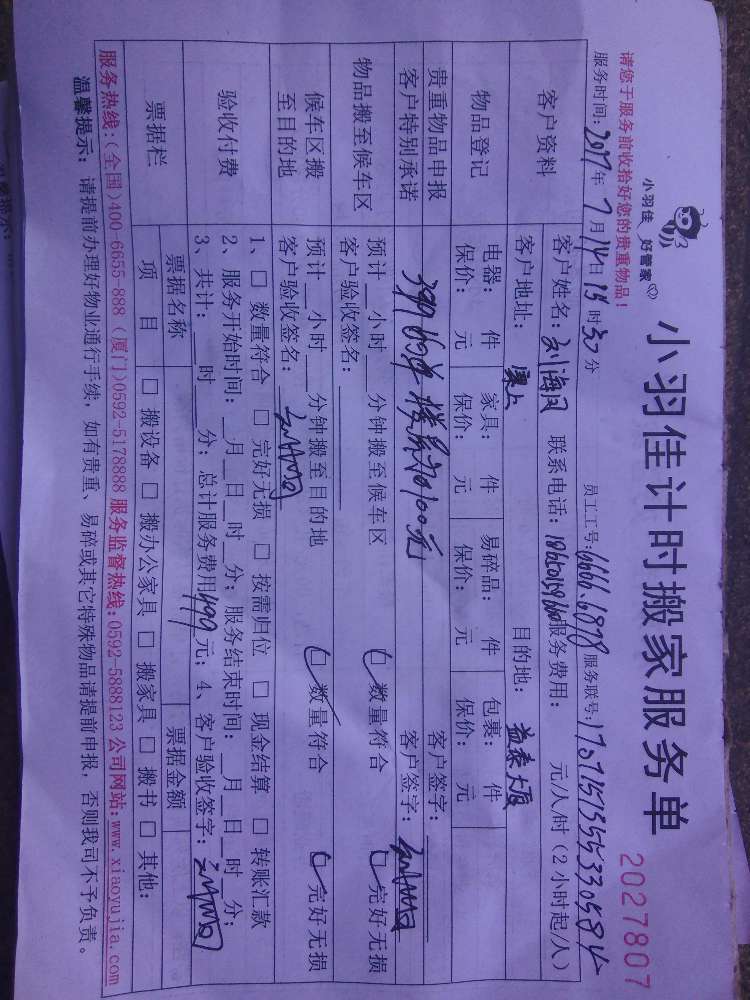 小羽佳 好管家
小羽佳计时搬家服务单
2027807
请您于服务前收拾好您的贵重物品！
服务时间：2017年7月14日15时30分 员工工号：6666.6878 服务联号：
客户资料
客户姓名： 联系电话： 服务费用： 元/人/时（2小时起/人）
客户地址： 目的地：益泰大厦
物品登记
电器： 件 家具： 件 易碎品： 件 包裹： 件
保价： 元 保价： 元 保价： 元 保价： 元
贵重物品申报
客户特别承诺
客户签字：
客户签字：
物品搬至候车区
预计__小时__分钟搬至候车区 数量符合 完好无损
客户验收签名：
候车区搬
至目的地
预计__小时__分钟搬至目的地 数量符合 完好无损
客户验收签名：
验收付费
1、□ 数量符合 □ 完好无损 □ 按需归位 □ 现金结算 □ 转账汇款
2、服务开始时间：__月__日__时__分；服务结束时间：__月__日__时__分；
3、共计：__时__分；总计服务费用499元；4、客户验收签字：
票据栏
票据名称 票据金额
项 目 □ 搬设备 □ 搬办公家具 □ 搬家具 □ 搬书 □ 其他：
服务热线：(全国)400-6655-888 (厦门)0592-5178888 服务监督热线：0592-5888123 公司网站：www.xiaoyujia.com
温馨提示：请提前办理好物业通行手续，如有贵重、易碎或其它特殊物品请提前申报，否则我司不予负责。